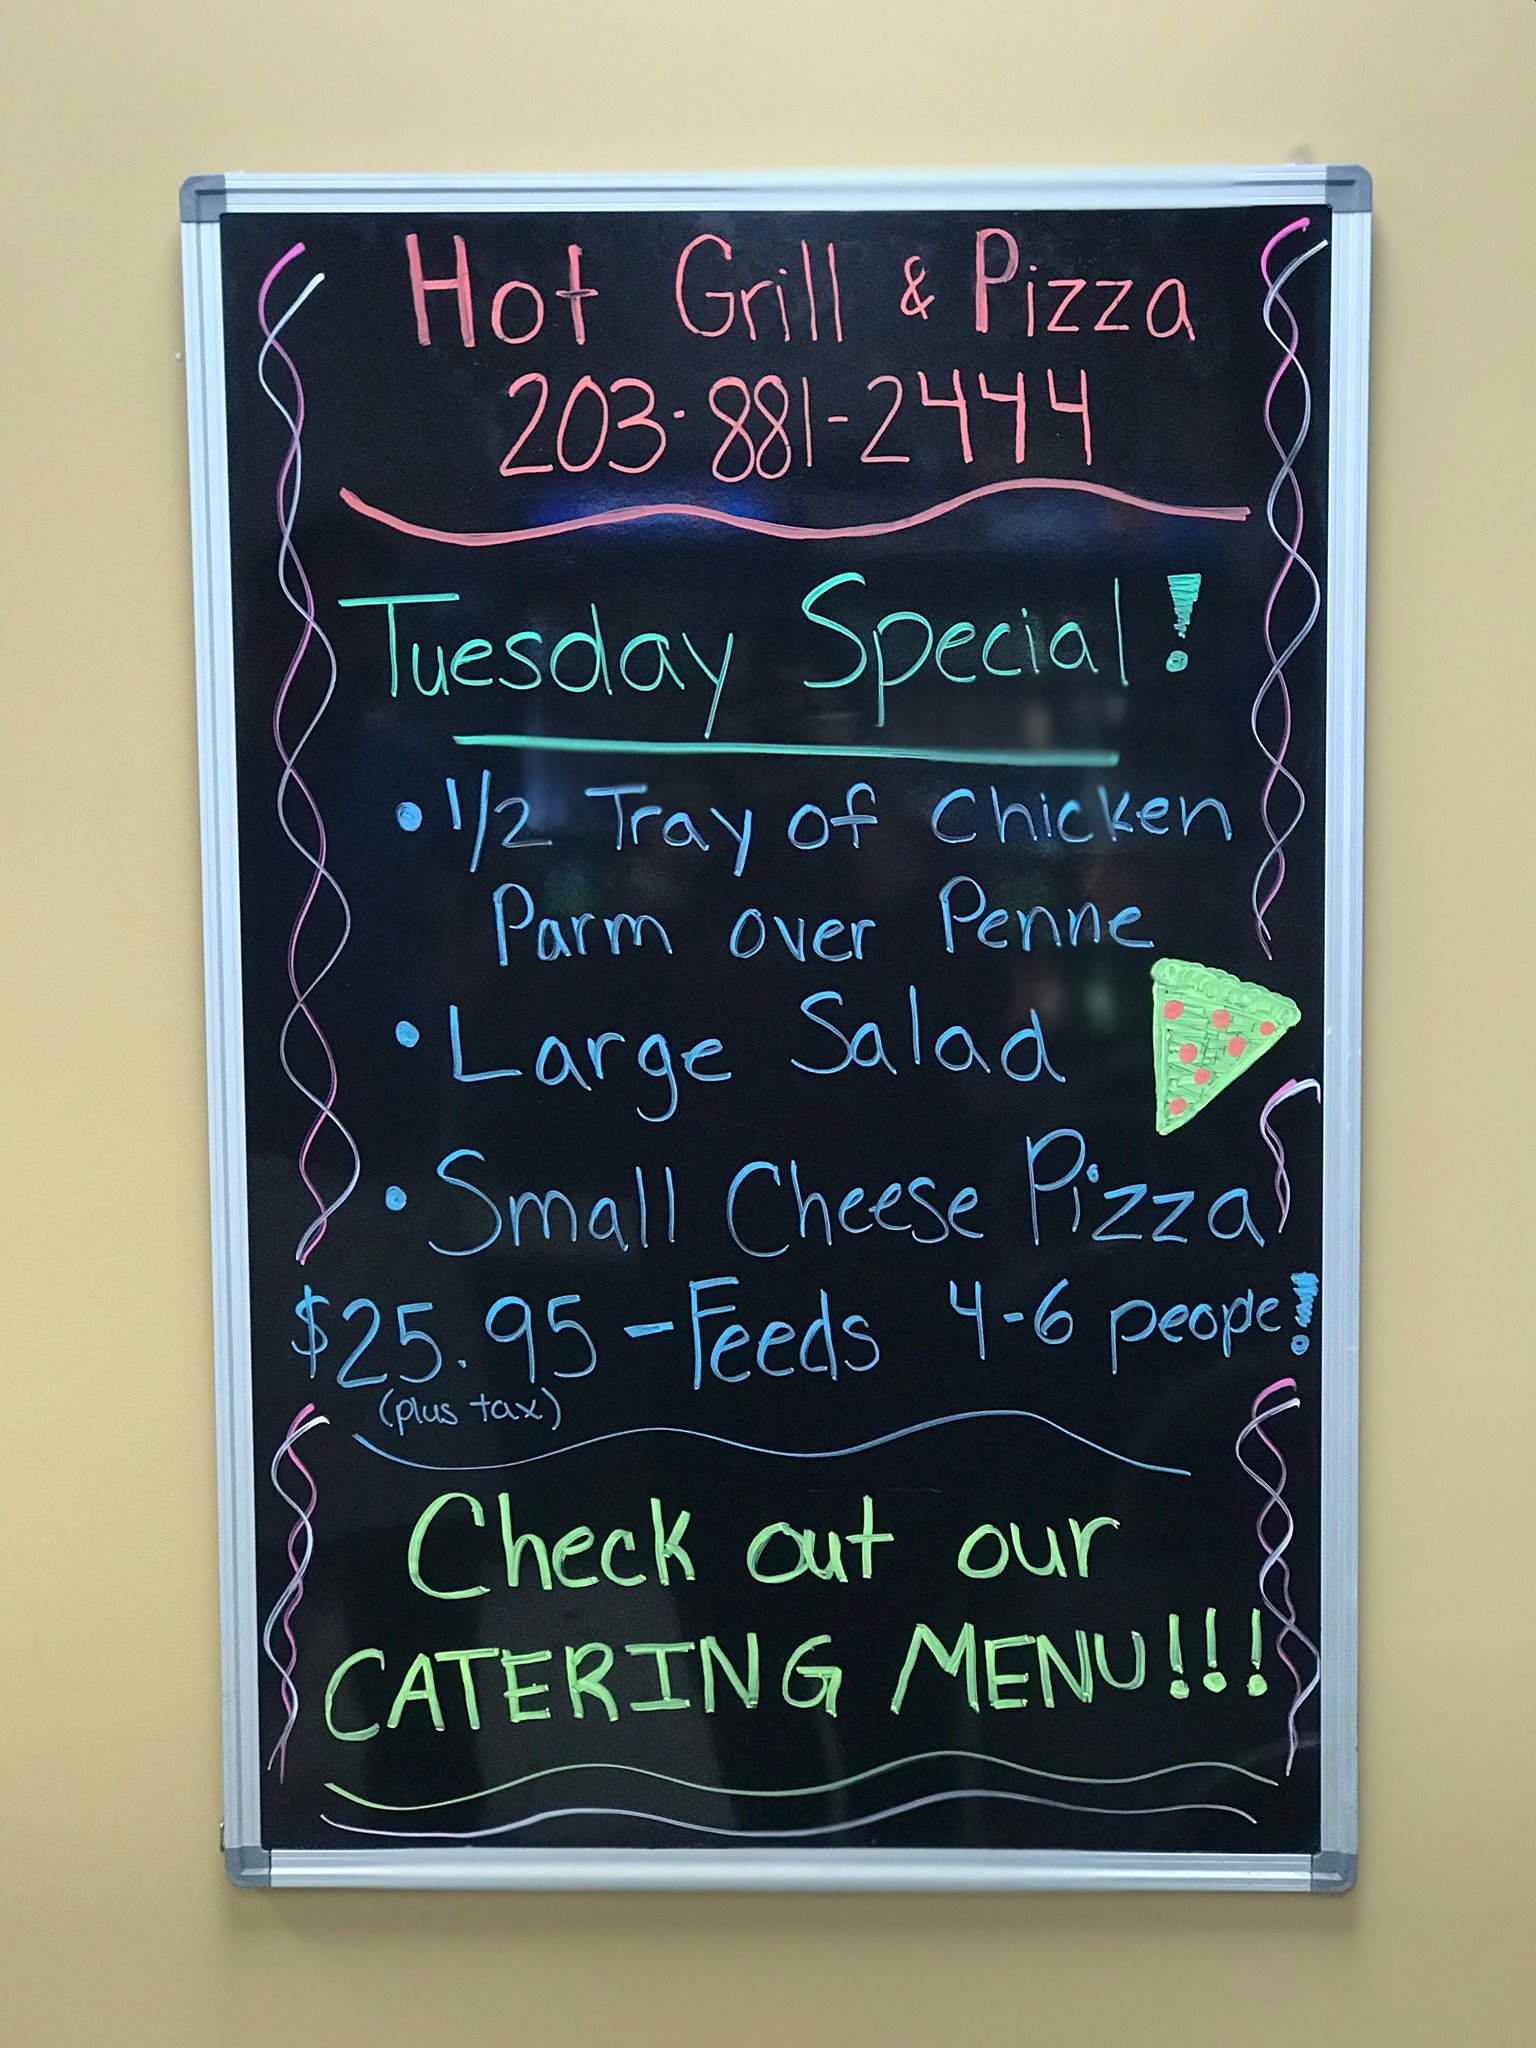 Hot Grill & Pizza
203-881-2444
Tuesday Special!
• 1/2 Tray of Chicken
Parm over Penne
• Large Salad
• Small Cheese Pizza
$25.95 - Feeds 4-6 people!
(plus tax)
Check out our
CATERING MENU!!!